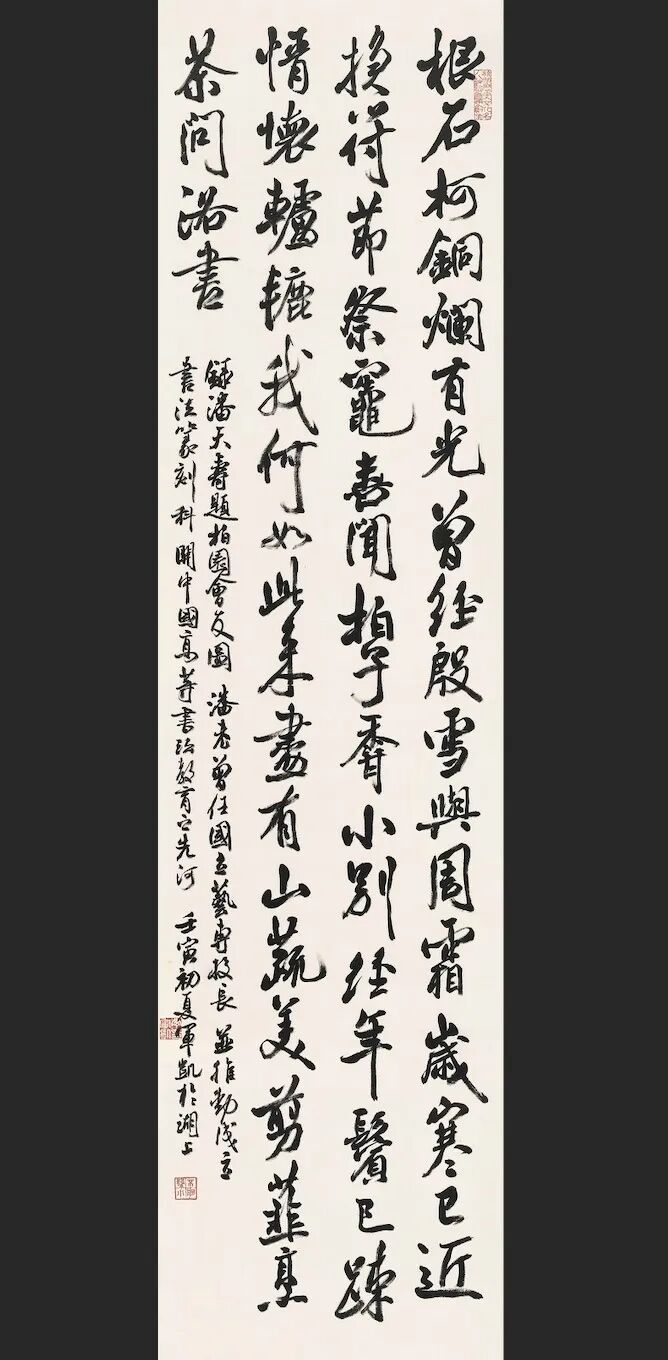 根石柯銅爛有光曾經殷雪與周霜歲寒已近
換符節祭竈喜聞柏子香小別經年鬢已疎
情懷轤轆我何如此來盡有山蔬美剪韭烹
茶問洛書
錄潘天壽題柏園會友圖 潘老曾任國立藝專校長 並推動成立
書法篆刻科 開中國高等書法教育之先河 壬寅初夏軍凱於湖上